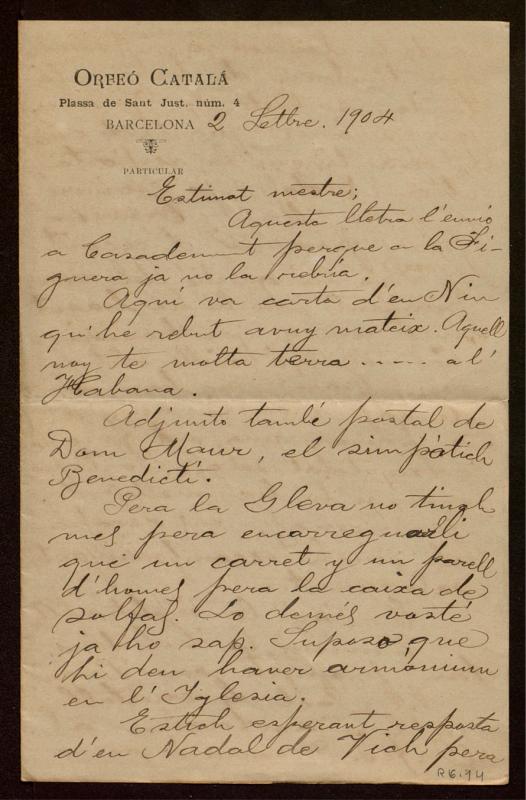 ORFEÓ CATALÁ
Plassa de Sant Just. núm. 4
BARCELONA 2 Setbre. 1904
PARTICULAR
Estimat mestre;
Aquesta lletra l'envio
a Casademunt perque a la Fi-
guera ja no la rebria.
Aquí va carta d'en Nin
qu'he rebut avuy mateix. Aquell
noy te molta terra ..... a l'
Habana.
Adjunto també postal de
Dom Maur, el simpátich
Benedictí.
Pera la Gleva no tinch
mes pera encarregarli
que un carret y un parell
d'homes pera la caixa de
solfas. Lo demés vosté
ja ho sap. Suposo que
hi deu haver armónium
en l'Iglesia.
Estich esperant resposta
d'en Nadal de Vich pera
R6.94